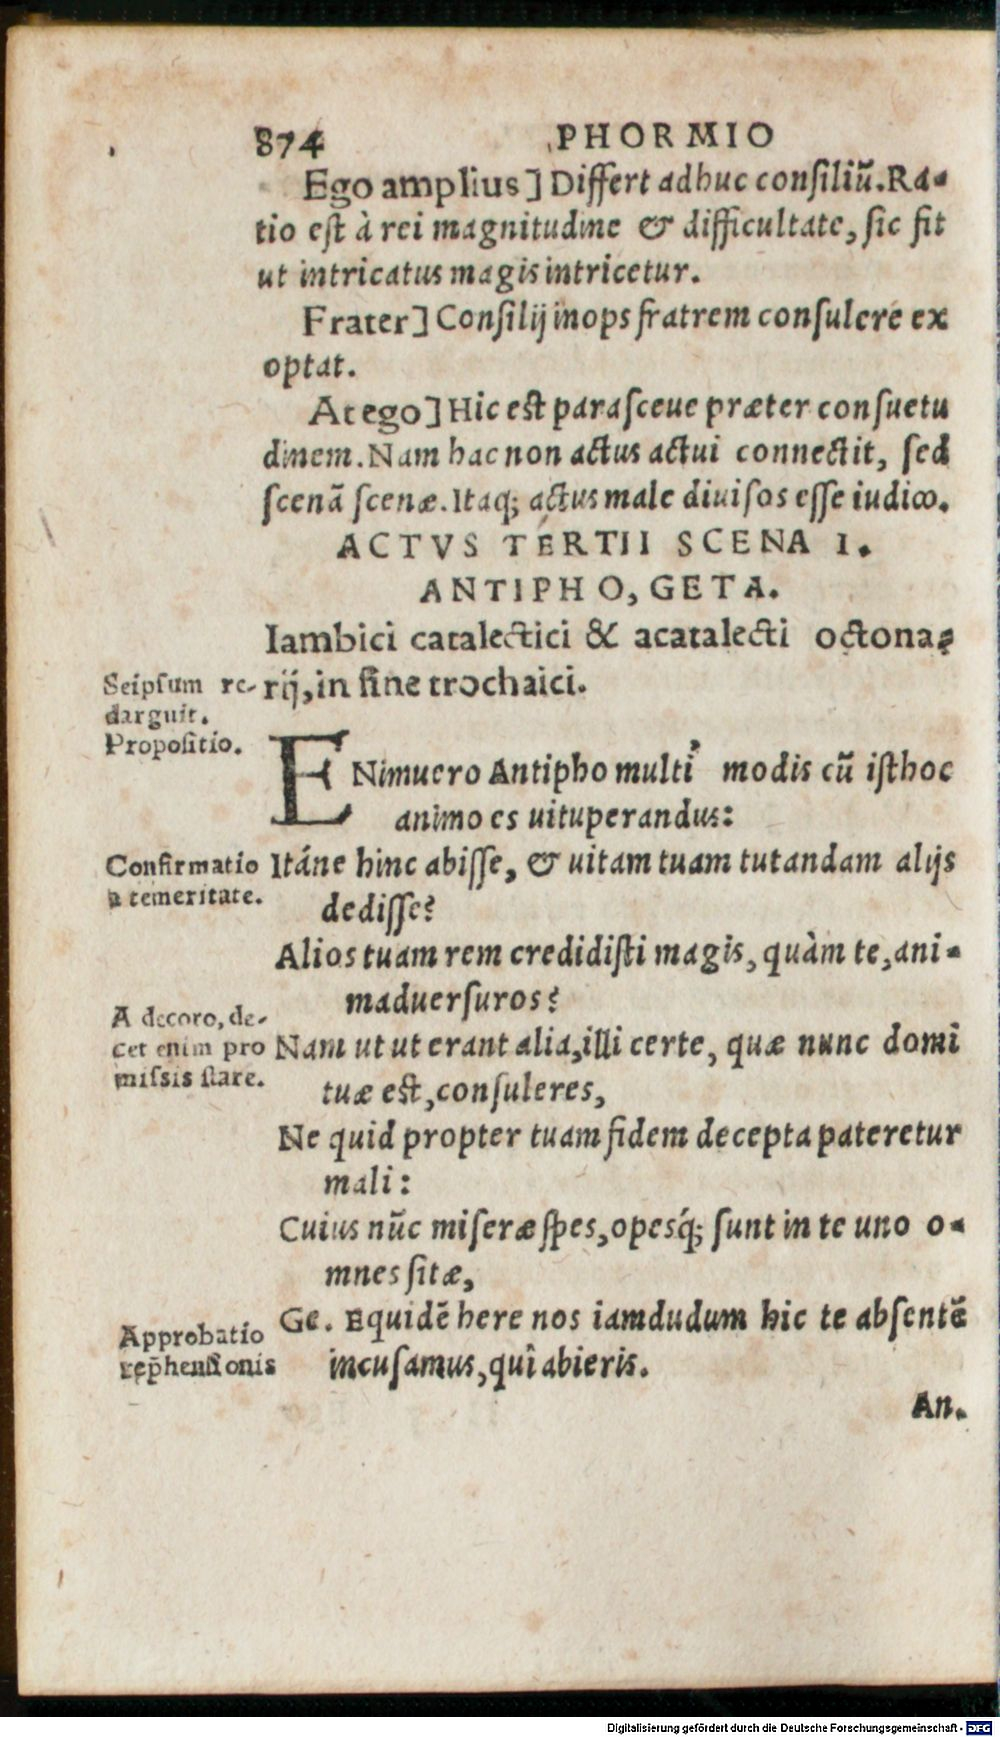 874 PHORMIO
Ego amplius] Differt adhuc consiliũ. Ra-
tio est à rei magnitudine & difficultate, sic fit
ut intricatus magis intricetur.
Frater] Consilij inops fratrem consulere ex
optat.
At ego] Hic est parasceue præter consuetu
dinem. Nam hac non actus actui connectit, sed
scenã scenæ. Itaq; actus male diuisos esse iudico.
ACTVS TERTII SCENA I.
ANTIPHO, GETA.
Iambici catalectici & acatalecti octona-
rij, in fine trochaici.
Seipsum re-
darguit.
Propositio.
ENimuero Antipho multi' modis cũ isthoc
animo es uituperandus:
Confirmatio
a temeritate.
Itáne hinc abisse, & uitam tuam tutandam alijs
dedisse?
Alios tuam rem credidisti magis, quàm te, ani-
maduersuros?
A decoro, de-
cet enim pro
missis stare.
Nam ut ut erant alia, illi certe, quæ nunc domi
tuæ est, consuleres,
Ne quid propter tuam fidem decepta pateretur
mali:
Cuius nũc miseræ spes, opesq́; sunt in te uno o-
mnes sitæ,
Approbatio
rep̄hensionis
Ge. Equidẽ here nos iamdudum hic te absentẽ
incusamus, qui abieris.
An.
Digitalisierung gefördert durch die Deutsche Forschungsgemeinschaft - DFG